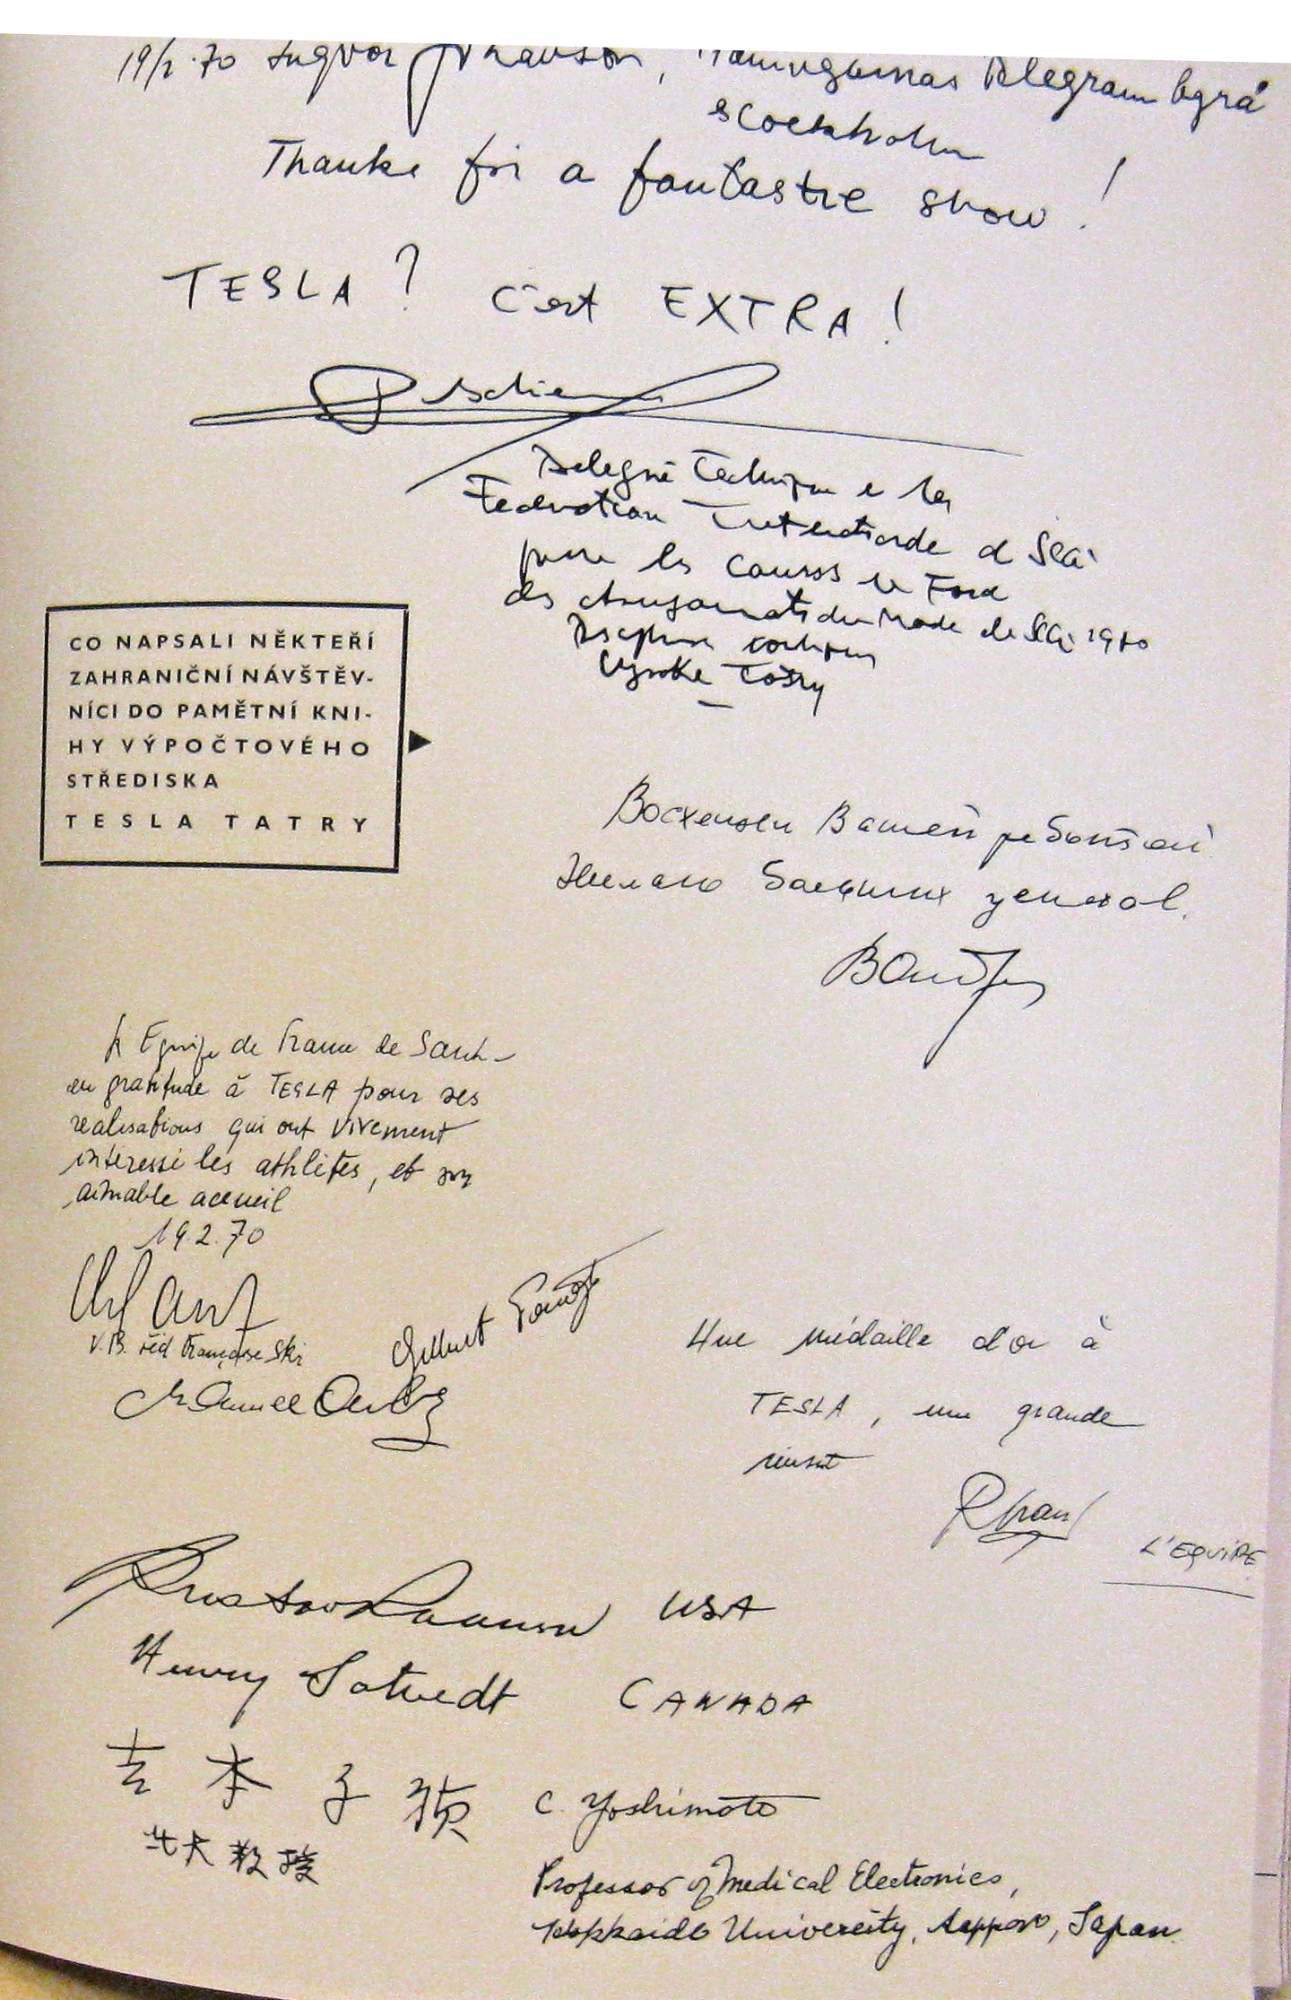 19/2.70 Ingvor Johansson, Tidningarnas Telegrambyrå
Stockholm
Thanks for a fantastic show!
TESLA? C'est EXTRA!
Délégué technique de la
Federation Internationale de Ski
pour les Courses de Fond
des Championnats du Monde de Ski 1970
Vysoke Tatry
CO NAPSALI NĚKTEŘÍ
ZAHRANIČNÍ NÁVŠTĚV-
NÍCI DO PAMĚTNÍ KNI-
HY VÝPOČTOVÉHO
STŘEDISKA
TESLA TATRY
Восхищен Вашей работой
Желаю больших успехов.
L'Equipe de France de Saut
en gratitude à TESLA pour ses
realisations qui ont vivement
intéressé les athlètes, et son
aimable accueil
19.2.70
V.P. Féd Française Ski
Gilbert
Une médaille d'or à
TESLA, une grande
réussite
L'EQUIPE
USA
Henry Sotvedt CANADA
吉本千禎 C. Yoshimoto
北大教授
Professor of Medical Electronics,
Hokkaido University, Sapporo, Japan